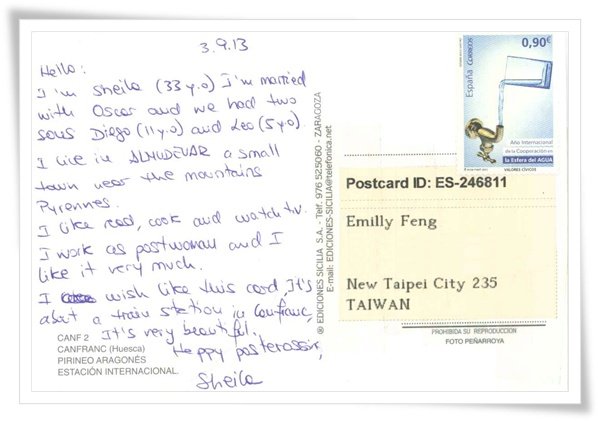 3.9.13
Hello:
I'm Sheila (33 y.o) I'm married
with Oscar and we had two
sons Diego (11 y.o) and Leo (5 y.o).
I live in ALMUDEVAR a small
town near the mountains
Pyrennes.
I like read, cook and watch tv.
I work as postwoman and I
like it very much.
I wish like this card It's
about a train station in Canfranc,
It's very beautiful.
Happy postcrossing,
Sheila
CANF 2
CANFRANC (Huesca)
PIRINEO ARAGONÉS
ESTACIÓN INTERNACIONAL.
® EDICIONES SICILIA S.A. - Telf. 976 525060 - ZARAGOZA
E-mail: EDICIONES-SICILIA@telefonica.net
España CORREOS
0,90€
Año Internacional
de la Cooperación en
la Esfera del AGUA
VALORES CÍVICOS
Postcard ID: ES-246811
Emilly Feng
New Taipei City 235
TAIWAN
PROHIBIDA SU REPRODUCCION
FOTO PEÑARROYA